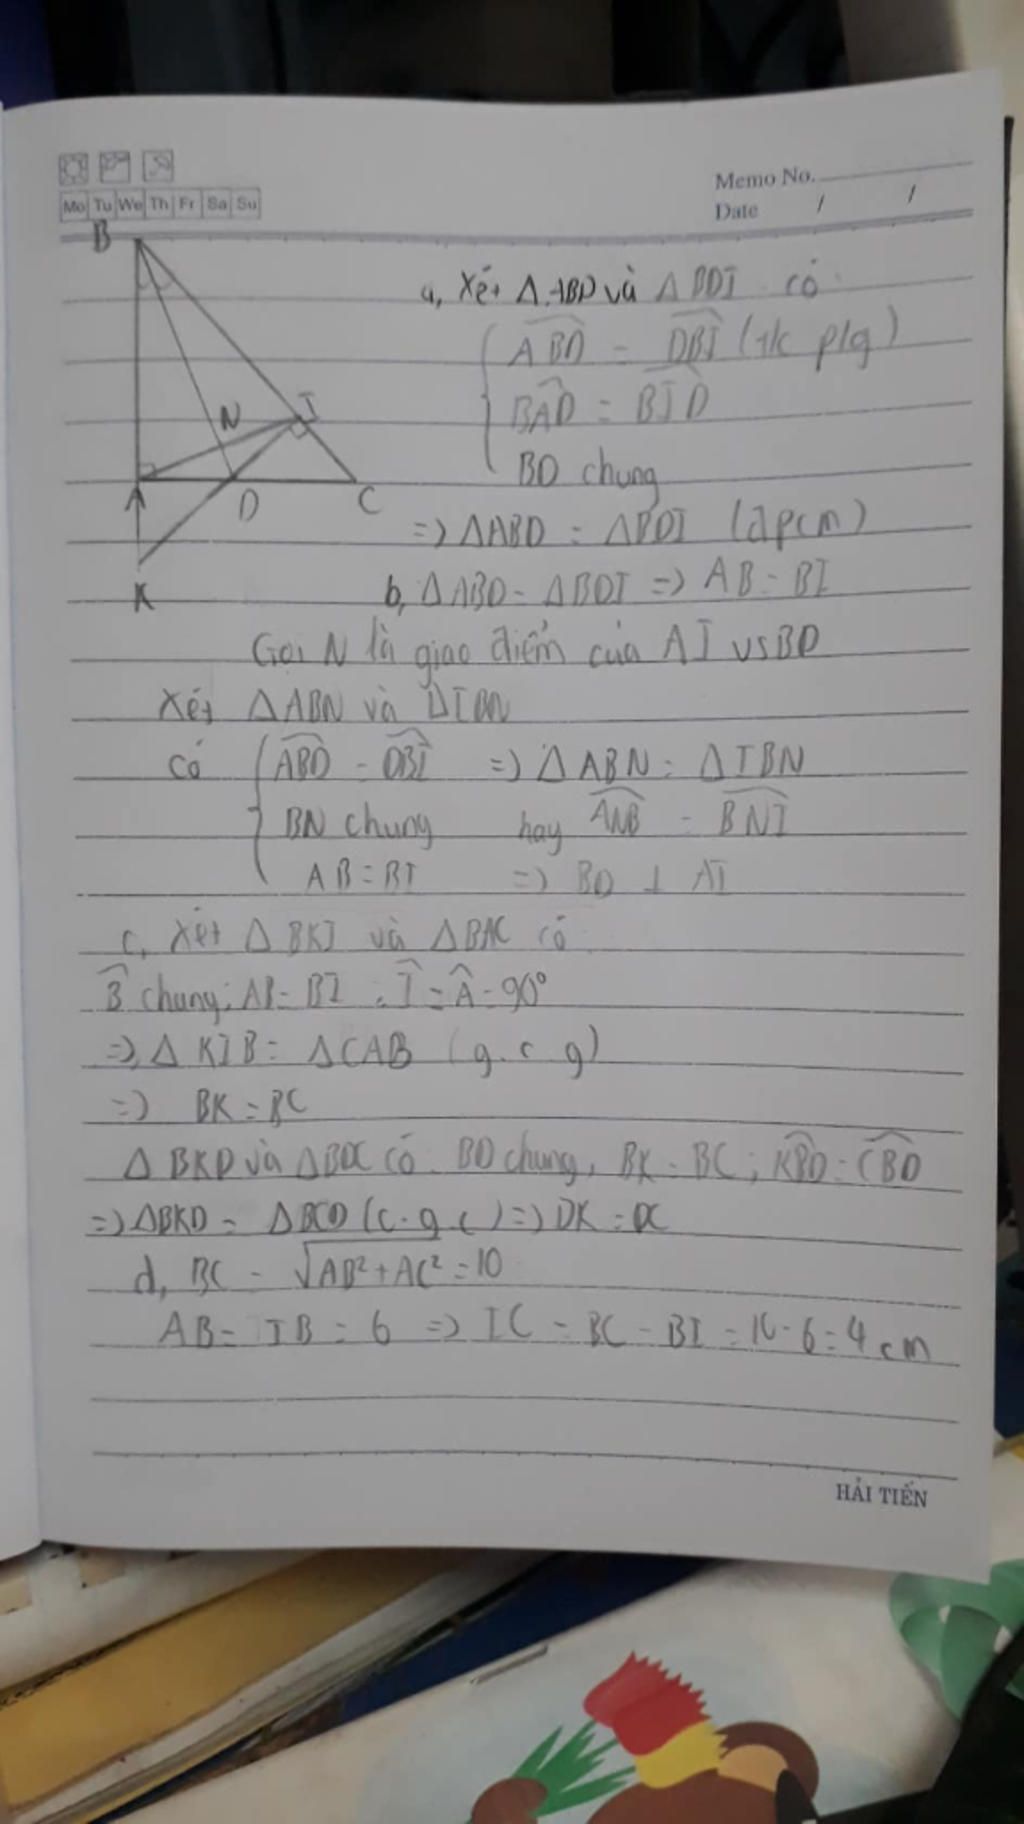 Memo No.
Mo Tu We Th Fr Sa Su
Date / /
B
N
I
A
D
C
K
a, Xét Δ ABD và Δ BDI có
ABD = DBI (t/c p/g)
BAD = BID
BD chung
=> ΔABD = ΔBDI (đpcm)
b, ΔABD = ΔBDI => AB = BI
Gọi N là giao điểm của AI vs BD
Xét ΔABN và ΔIBN
có ABD = DBI => ΔABN = ΔIBN
BN chung hay ANB = BNI
AB = BI => BD ⊥ AI
c, Xét Δ BKI và ΔBAC có
B chung; AB = BI ; I = A = 90°
=> Δ KIB = ΔCAB (g.c g)
=> BK = BC
Δ BKD và ΔBDC có BD chung, BK = BC ; KBD = CBD
=> ΔBKD = ΔBCD (c.g c) => DK = DC
d, BC = √AB²+AC² = 10
AB = IB = 6 => IC = BC - BI = 10 - 6 = 4 cm
HẢI TIẾN